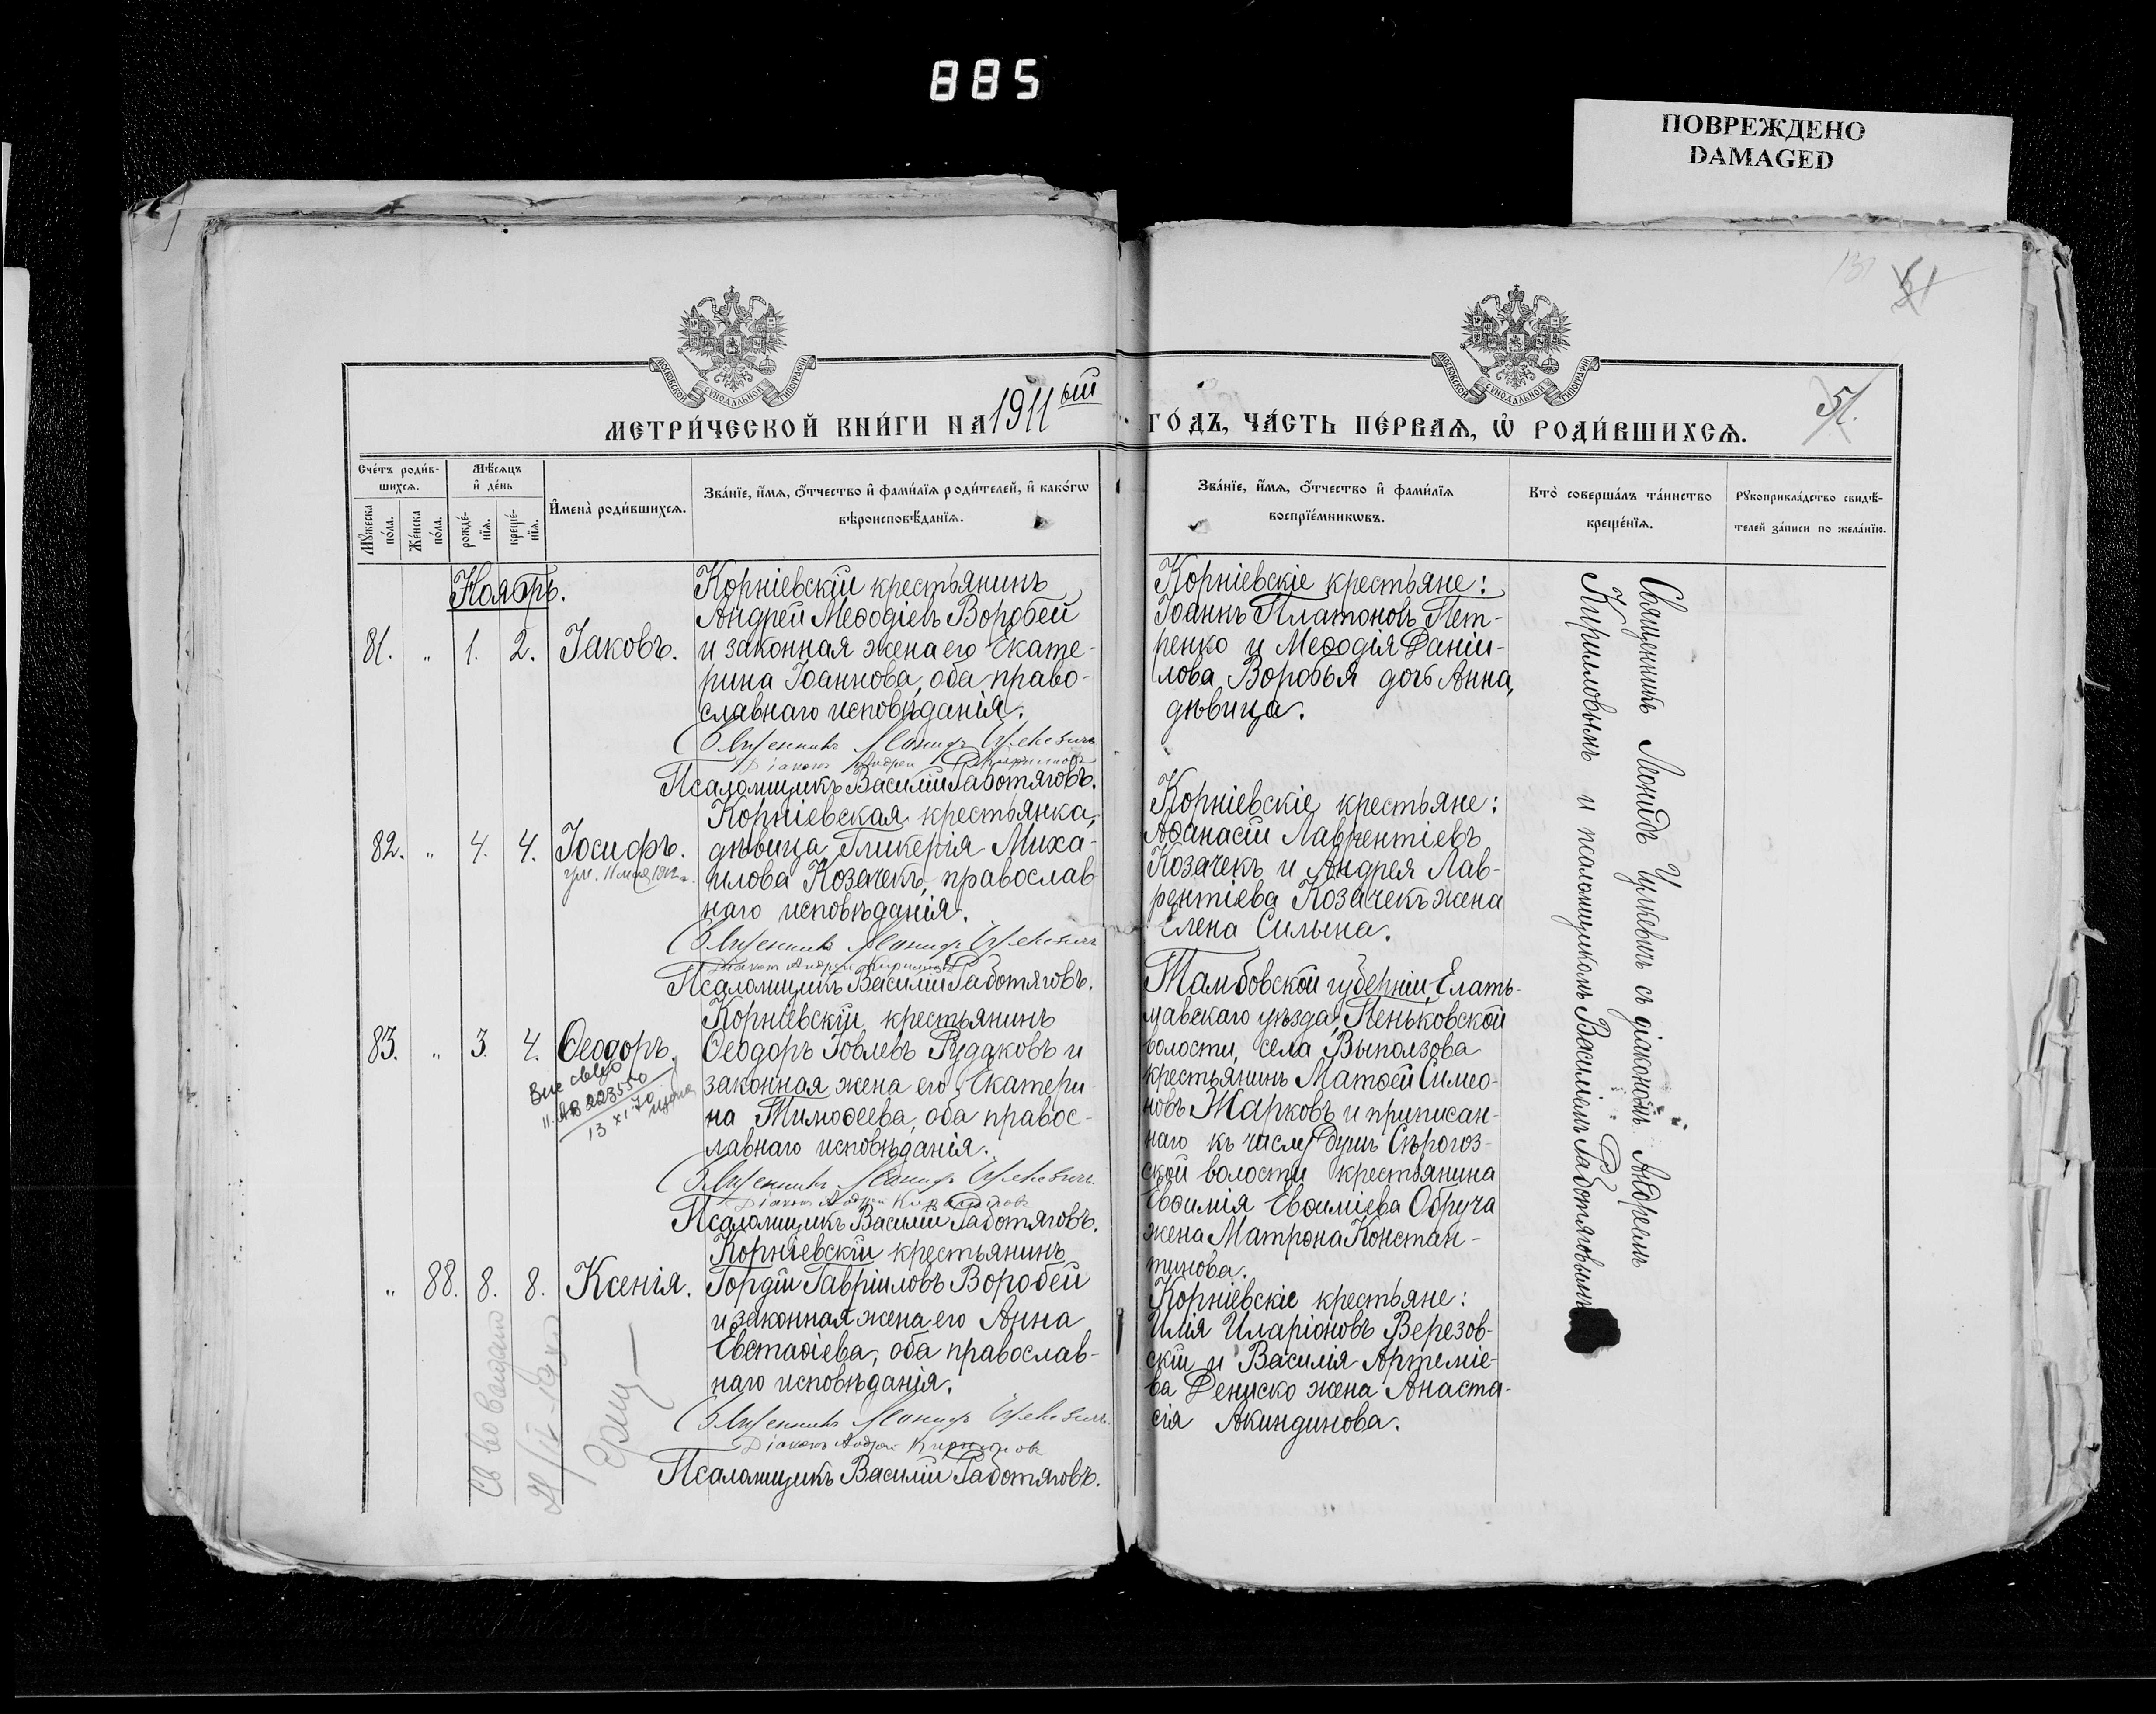 885
ПОВРЕЖДЕНО
DAMAGED
51
МОСКОВСКОЙ СѴНОДАЛЬНОЙ ТИПОГРАФІИ
МОСКОВСКОЙ СѴНОДАЛЬНОЙ ТИПОГРАФІИ
МЕТРИ́ЧЕСКОЙ КНИ́ГИ НА 1911ый ГО́ДЪ, ЧА́СТЬ ПЕ́РВАѦ, Ѡ РОДИ́ВШИХСѦ.
51.
Сче́тъ роди́в-
шихсѧ.
Мꙋ́жеска по́ла.
Же́нска по́ла.
Мѣ́сѧцъ
и҆ де́нь
рожде́-
нїѧ.
креще́-
нїѧ.
И҆мена̀ роди́вшихсѧ.
Зва́нїе, и҆́мѧ, ѻ҆́тчество и҆ фами́лїѧ роди́телей, и҆ како́гѡ
вѣроисповѣ́данїѧ.
Зва́нїе, и҆́мѧ, ѻ҆́тчество и҆ фами́лїѧ
воспрїе́мникѡвъ.
Кто̀ соверша́лъ та́инство
креще́нїѧ.
Рꙋкоприкла́дство свидѣ́-
телей за́писи по жела́нїю.
Ноябрь.
81. " 1. 2. Іаковъ.
Корніевскій крестьянинъ
Андрей Меѳодіевъ Воробей
и законная жена его Екате-
рина Іоаннова, оба право-
славнаго исповѣданія.
Священникъ Леонидъ Цулкевичъ
Діаконъ Андрей Кирилловъ
Псаломщикъ Василій Работяговъ.
Корніевскіе крестьяне:
Іоаннъ Платоновъ Пет-
ренко и Меѳодія Даніи-
лова Воробья дочь Анна,
дѣвица.
82. " 4. 4. Іосифъ.
ум. 11 мая 1912 г.
Корніевская крестьянка,
дѣвица Гликерія Миха-
илова Козачекъ, православ
наго исповѣданія.
Священникъ Леонидъ Цулкевичъ
Діаконъ Андрей Кирилловъ
Псаломщикъ Василій Работяговъ.
Корніевскіе крестьяне:
Аѳанасій Лаврентіевъ
Козачекъ и Андрея Лав-
рентіева Козачекъ жена
Елена Силына.
83. " 3. 4. Ѳеодоръ.
II. АВ 223550
13 XI 70
Корніевскій крестьянинъ
Ѳеодоръ Іовлевъ Рудаковъ и
законная жена его Екатери-
на Тимоѳеева, оба правос-
лавнаго исповѣданія.
Священникъ Леонидъ Цулкевичъ
Діаконъ Андрей Кирилловъ
Псаломщикъ Василій Работяговъ.
Тамбовской губерніи, Елать-
мавскаго уѣзда, Пеньковской
волости, села Выползова
крестьянинъ Матѳей Симео-
новъ Жарковъ и приписан-
наго къ числу душъ Сѣрогоз-
ской волости крестьянина
Евѳимія Евѳиміева Обруча
жена Матрона Констан-
тинова.
" 88. 8. 8. Ксенія.
Корніевскій крестьянинъ
Гордій Гавріиловъ Воробей
и законная жена его Анна
Евстаѳіева, оба православ-
наго исповѣданія.
Священникъ Леонидъ Цулкевичъ
Діаконъ Андрей Кирилловъ
Псаломщикъ Василій Работяговъ.
Корніевскіе крестьяне:
Илія Иларіоновъ Верезов-
скій и Василія Артеміе-
ва Дениско жена Анаста-
сія Акиндинова.
Св во выдано
Священникъ Леонидъ Цулкевичъ съ діакономъ Андреемъ
Кирилловымъ и псаломщикомъ Василіемъ Работяговымъ